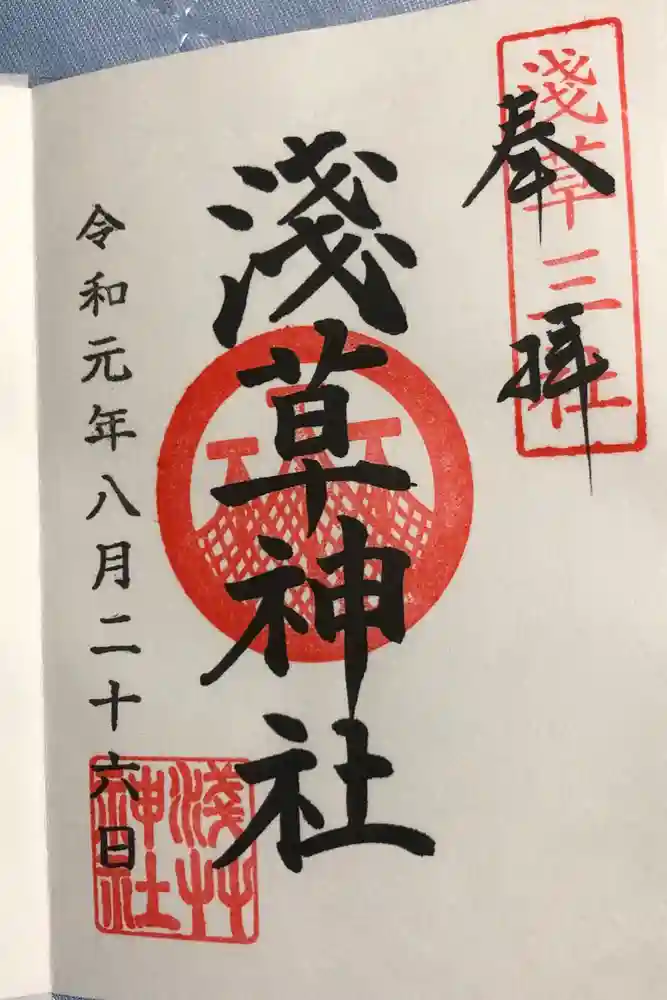 奉拝
淺草三社
淺草神社
令和元年八月二十六日
淺艸
神社